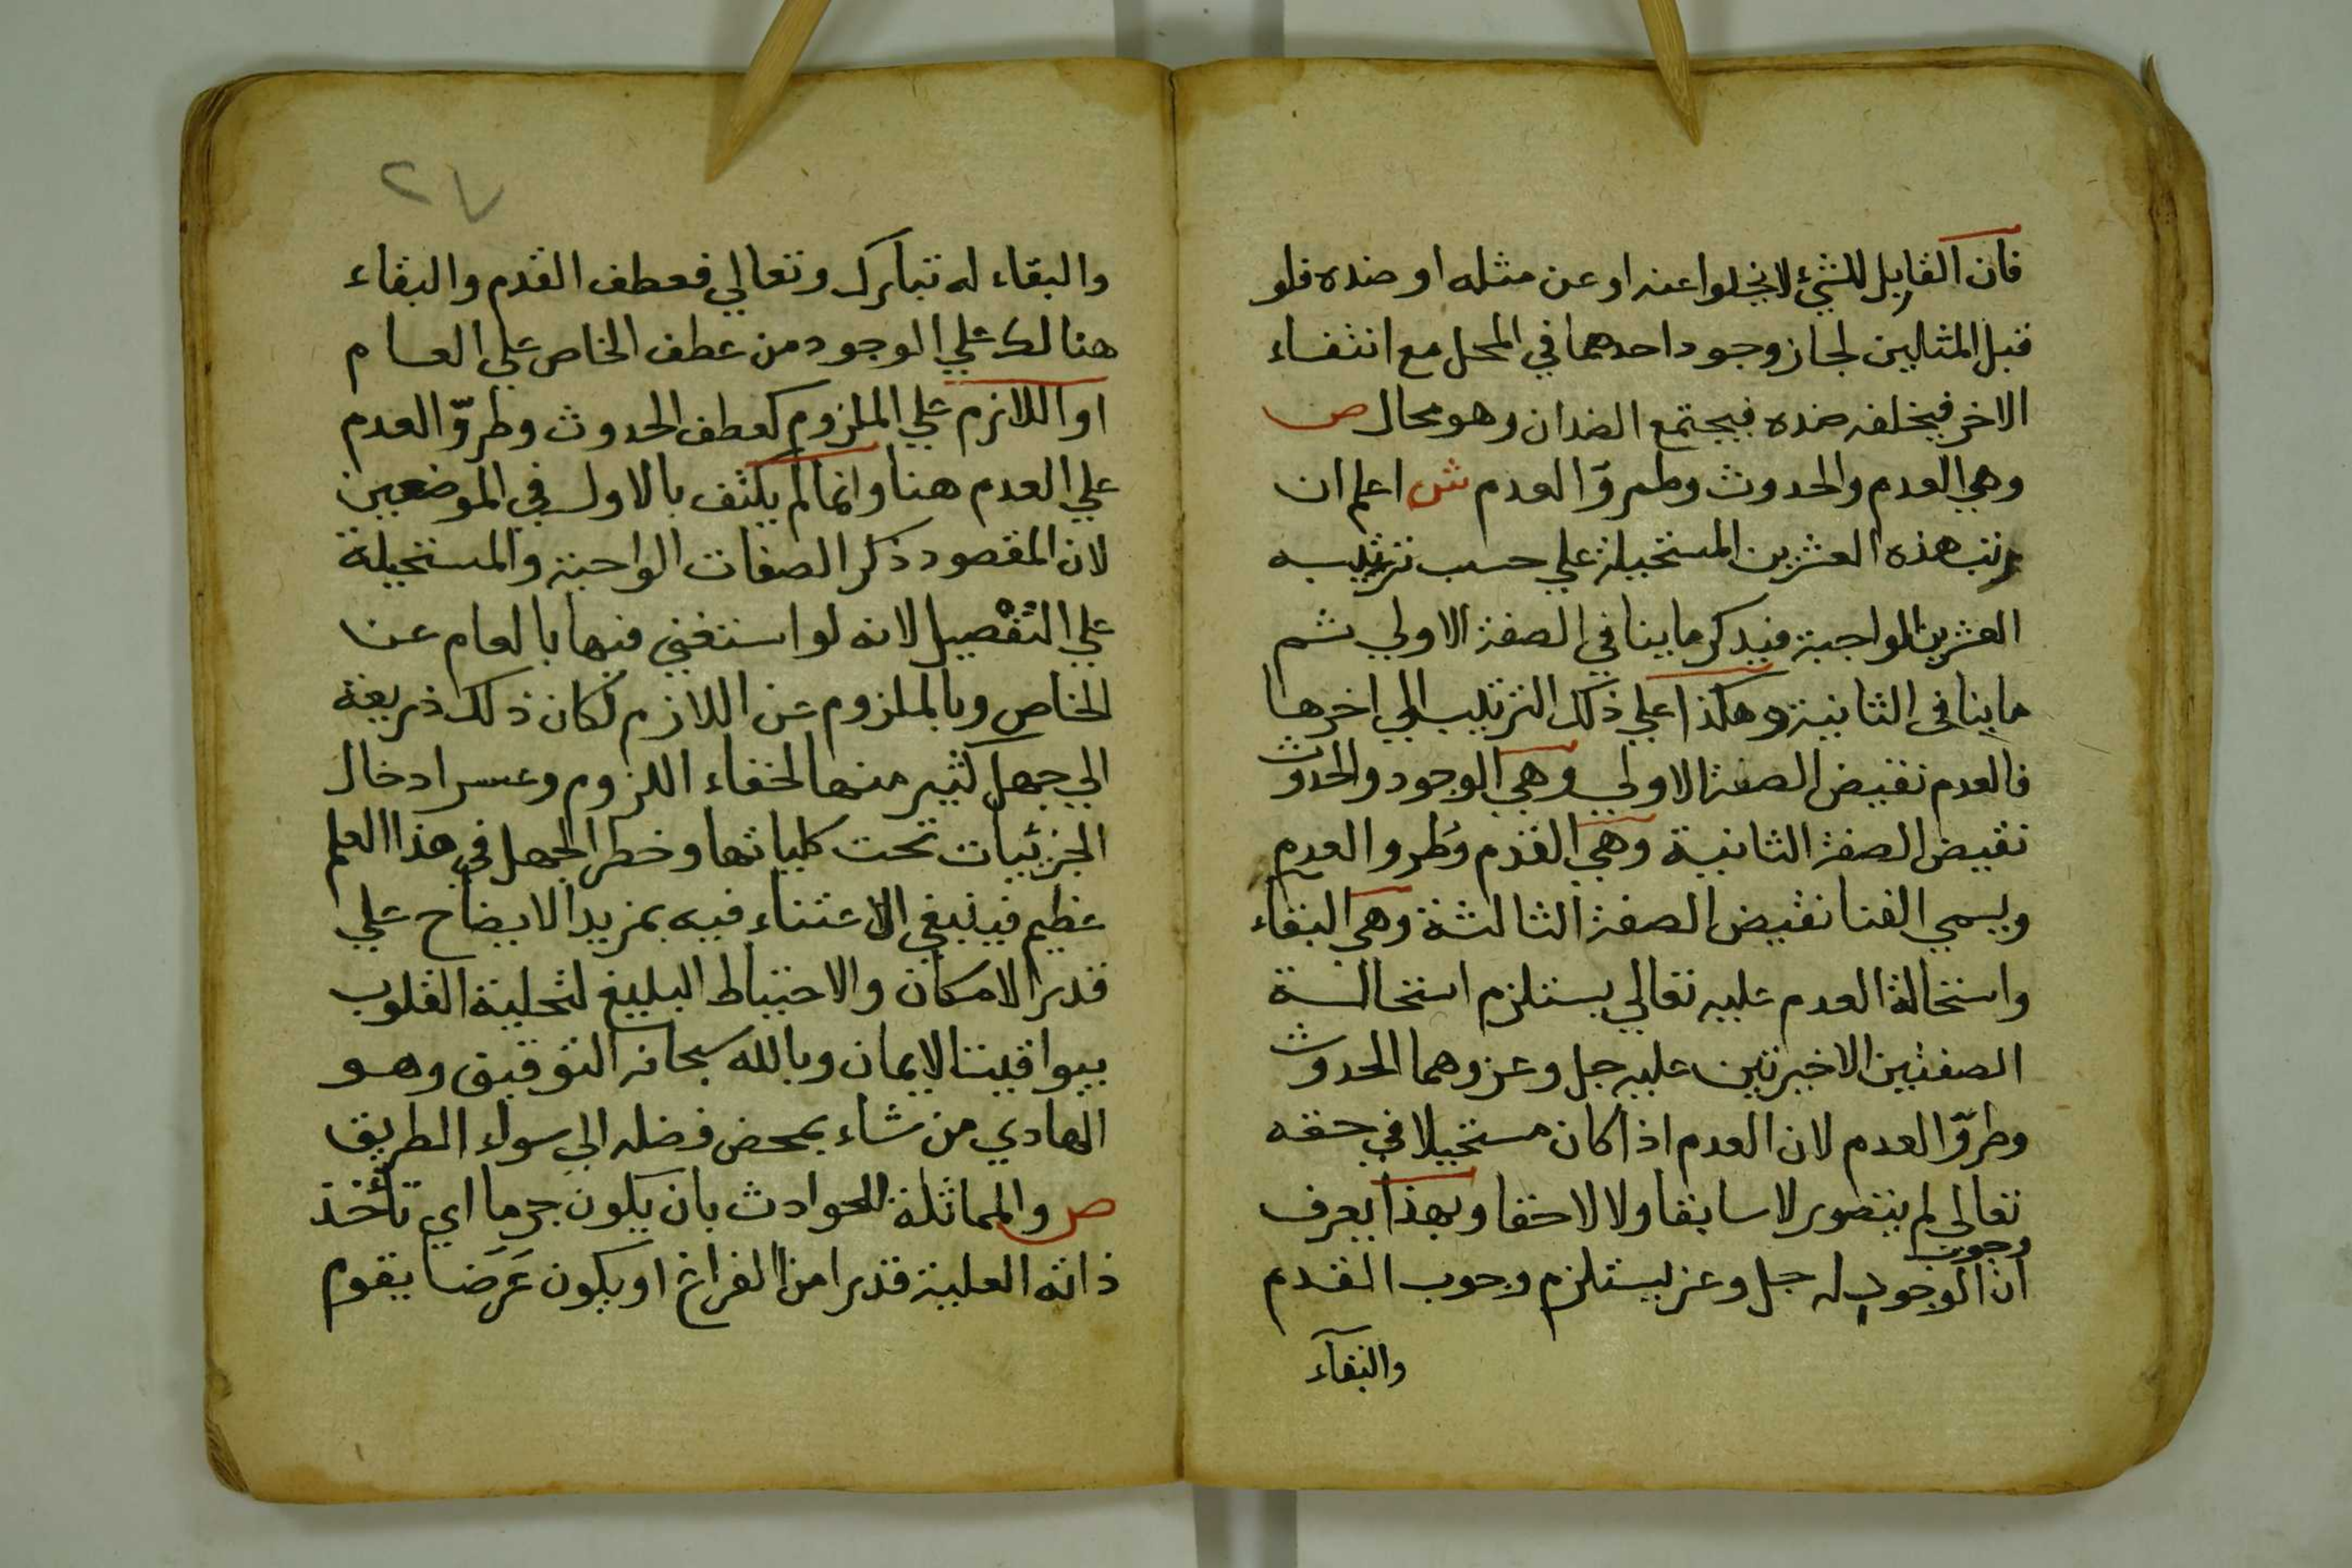 فان القابل للشيء لا يخلوا عنه او عن مثله او ضده فلو
قبل المثالين لجاز وجود احدهما في المحل مع انتفاء
الاخر فيخلفه ضده فيجتمع الضدان وهو محال ص
وهي العدم والحدوث وطروّ العدم ش اعلم ان
رتب هذه العشرين المستحيلة علي حسب ترتيب
العشرين الواجبة فيذكر ما ينافي الصفة الاولي ثم
ما ينافي الثانية وهكذا علي ذلك الترتيب الي اخرها
فالعدم نقيض الصفة الاولي وهي الوجود والحدوث
نقيض الصفة الثانية وهي القدم وطرو العدم
ويسمي الفنا نقيض الصفة الثالثة وهي البقاء
واستحالة العدم عليه تعالي يستلزم استحالة
الصفتين الاخيرتين عليه جل وعز وهما الحدوث
وطروّ العدم لان العدم اذا كان مستحيلا في حقه
تعالي لم يتصور لا سابقا ولا لاحقا وبهذا يعرف
وجوب
ان الوجود له جل وعز يستلزم وجوب القدم
والبقآء
٢٧
والبقاء له تبارك وتعالي فعطف القدم والبقاء
هنالك علي الوجود من عطف الخاص علي العام
او اللازم علي الملزوم كعطف الحدوث وطروّ العدم
علي العدم هنا وانما لم يكتف بالاول في الموضعين
لان المقصود ذكر الصفات الواجبة والمستحيلة
علي التفصيل لانه لو استغني فيها بالعام عن
الخاص وبالملزوم عن اللازم لكان ذلك ذريعة
الي جهل كثير منها لخفاء اللزوم وعسر ادخال
الجزئيات تحت كلياتها وخطر الجهل في هذا العلم
عظيم فينبغي الاعتناء فيه بمزيد الايضاح علي
قدر الامكان والاحتياط البليغ لتحلية القلوب
بيواقيت الايمان وبالله سبحانه التوفيق وهو
الهادي من شاء بمحض فضله الي سواء الطريق
ص والمماثلة للحوادث بان يكون جرما اي تأخذ
ذاته العلية قدرا من الفراغ او يكون عَرَضا يقوم